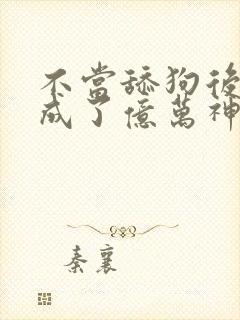 不當舔狗後
成了億萬神
秦襄